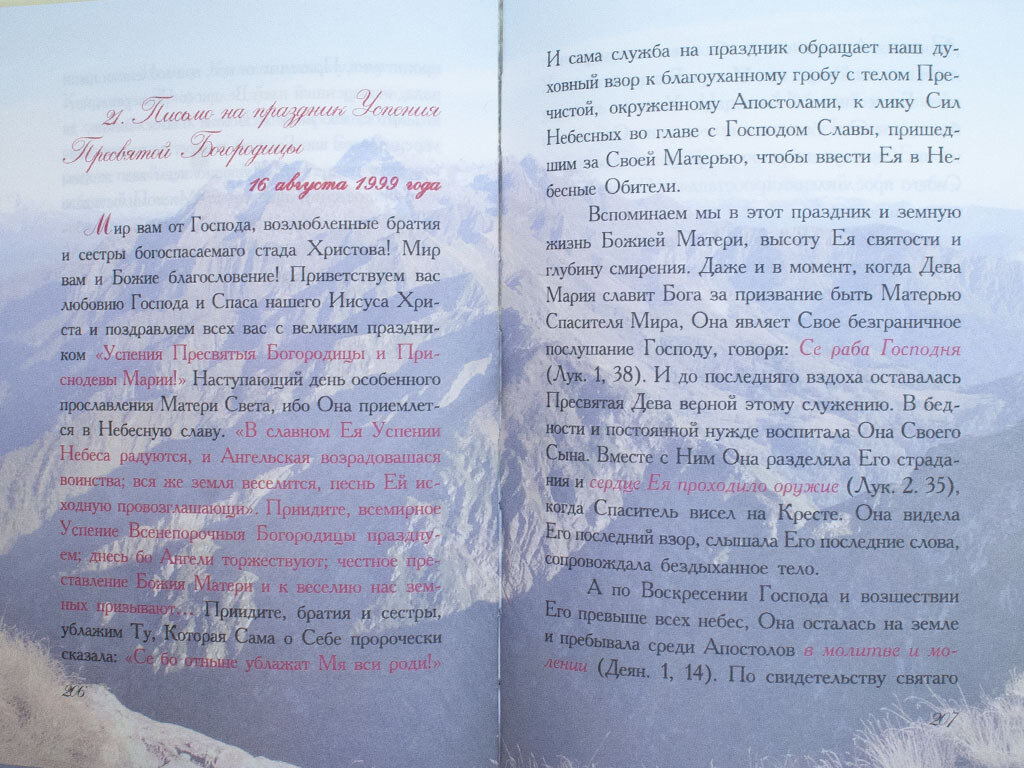 21. Письмо на праздник Успения
Пресвятой Богородицы
16 августа 1999 года
Мир вам от Господа, возлюбленные братия
и сестры богоспасаемаго стада Христова! Мир
вам и Божие благословение! Приветствуем вас
любовию Господа и Спаса нашего Иисуса Хри-
ста и поздравляем всех вас с великим праздни-
ком «Успения Пресвятыя Богородицы и При-
снодевы Марии!» Наступающий день особенного
прославления Матери Света, ибо Она приемлет-
ся в Небесную славу. «В славном Ея Успении
Небеса радуются, и Ангельская возрадовашася
воинства; вся же земля веселится, песнь Ей ис-
ходную провозглашающи». Приидите, всемирное
Успение Всенепорочныя Богородицы празднy-
ем; днесь бо Ангели торжествуют; честное пре-
ставление Божия Матери и к веселию нас зем-
ных призывают... Приидите, братия и сестры,
ублажим Ту, Которая Сама о Себе пророчески
сказала: «Се бо отныне ублажат Мя вси роди!»
206
И сама служба на праздник обращает наш ду-
ховный взор к благоуханному гробу с телом Пре-
чистой, окруженному Апостолами, к лику Сил
Небесных во главе с Господом Славы, пришед-
шим за Своей Матерью, чтобы ввести Ея в Не-
бесные Обители.
Вспоминаем мы в этот праздник и земную
жизнь Божией Матери, высоту Ея святости и
глубину смирения. Даже и в момент, когда Дева
Мария славит Бога за призвание быть Матерью
Спасителя Мира, Она являет Свое безграничное
послушание Господу, говоря: Се раба Господня
(Лук. 1, 38). И до последняго вздоха оставалась
Пресвятая Дева верной этому служению. В бед-
ности и постоянной нужде воспитала Она Своего
Сына. Вместе с Ним Она разделяла Его страда-
ния и сердце Ея проходило оружие (Лук. 2. 35),
когда Спаситель висел на Кресте. Она видела
Его последний взор, слышала Его последние слова,
сопровождала бездыханное тело.
А по Воскресении Господа и возшествии
Его превыше всех небес, Она осталась на земле
и пребывала среди Апостолов в молитве и мо-
лении (Деян. 1, 14). По свидетельству святаго
207